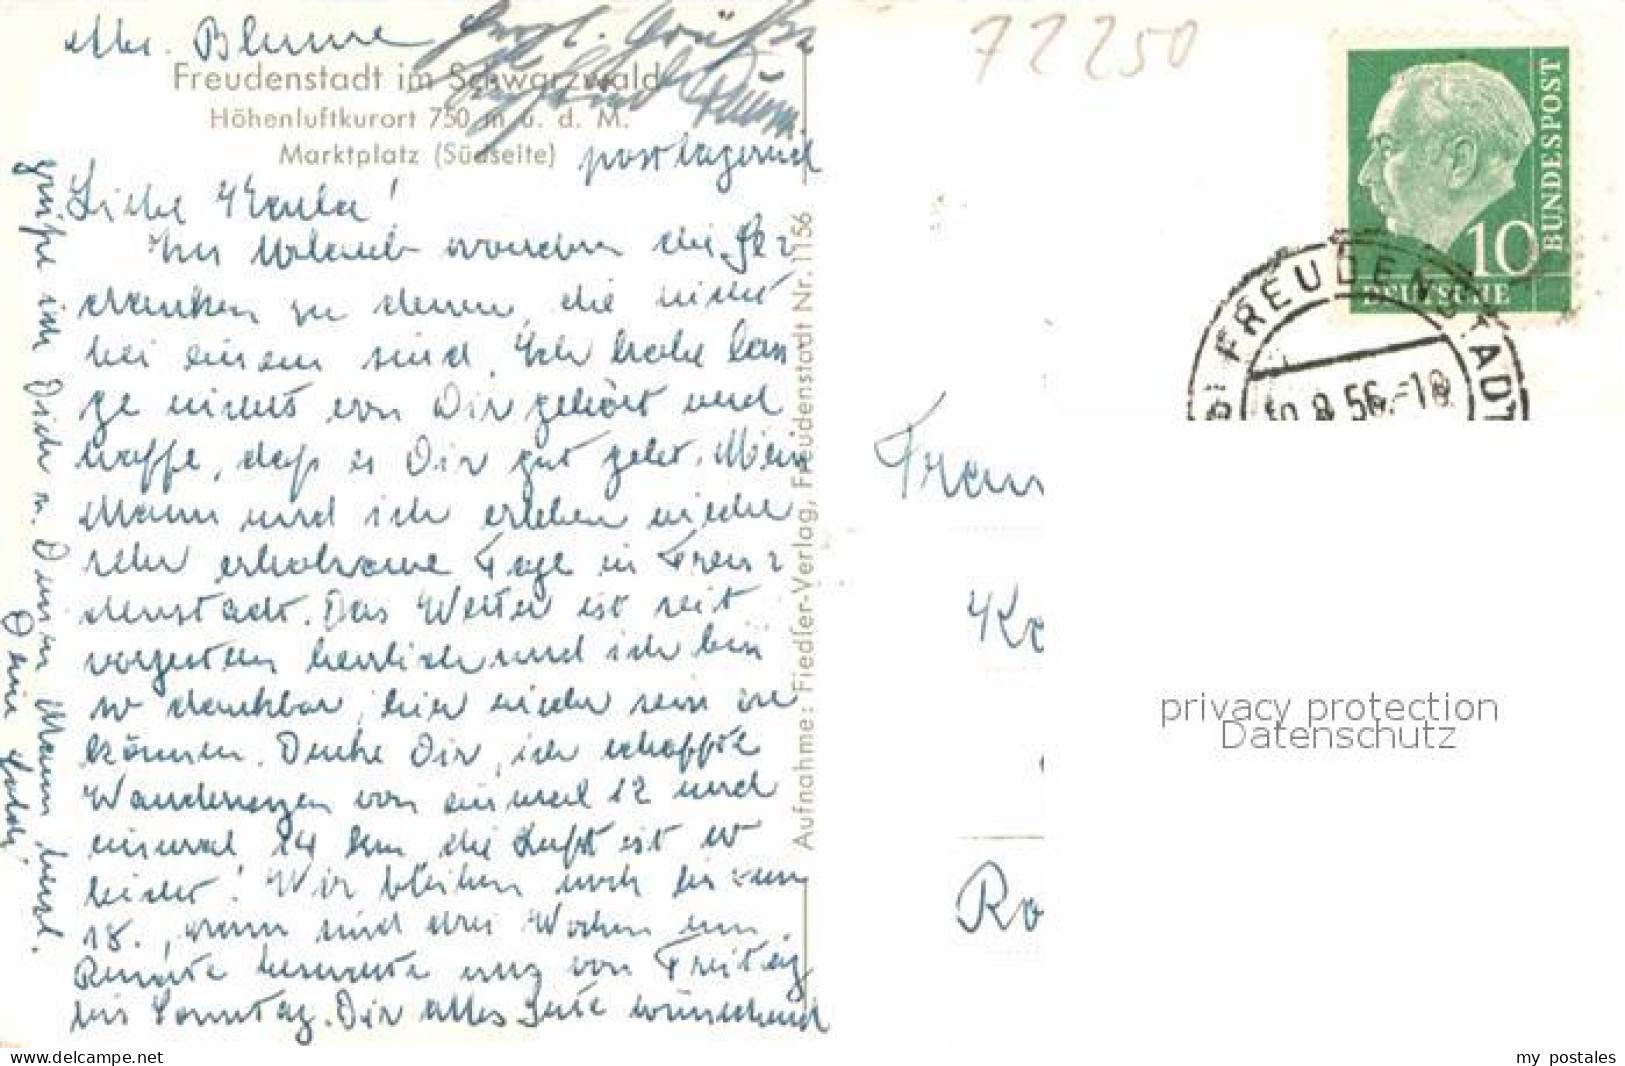 Blume
Freudenstadt im Schwarzwald
Höhenluftkurort 750 m ü. d. M.
Marktplatz (Südseite)
postlagernd
Liebe
Im Urlaub wandern die Ge-
danken zu denen, die nicht
bei einem sind. Ich habe lan-
ge nichts von Dir gehört und
hoffe, daß es Dir gut geht. Mein
Mann und ich erleben wieder
sehr erholsame Tage in Freu-
denstadt. Das Wetter ist seit
vorgestern herrlich und ich bin
so dankbar, hier wieder sein zu
können. Denke Dir, ich schaffte
Wanderungen von einmal 12 und
einmal 14 km, die Luft ist so
leicht! Wir bleiben noch bis zum
18., dann sind drei Wochen um.
Renate besuchte uns von Freitag
bis Sonntag. Dir alles Gute wünschend
grüße ich Dich u. Deinen Mann herzl.
Deine
Aufnahme: Fiedler-Verlag, Freudenstadt Nr. 1156
72250
DEUTSCHE
BUNDESPOST
10
FREUDENSTADT
10.8.56.-18
Frau
Ro
privacy protection
Datenschutz
www.delcampe.net
my_postales